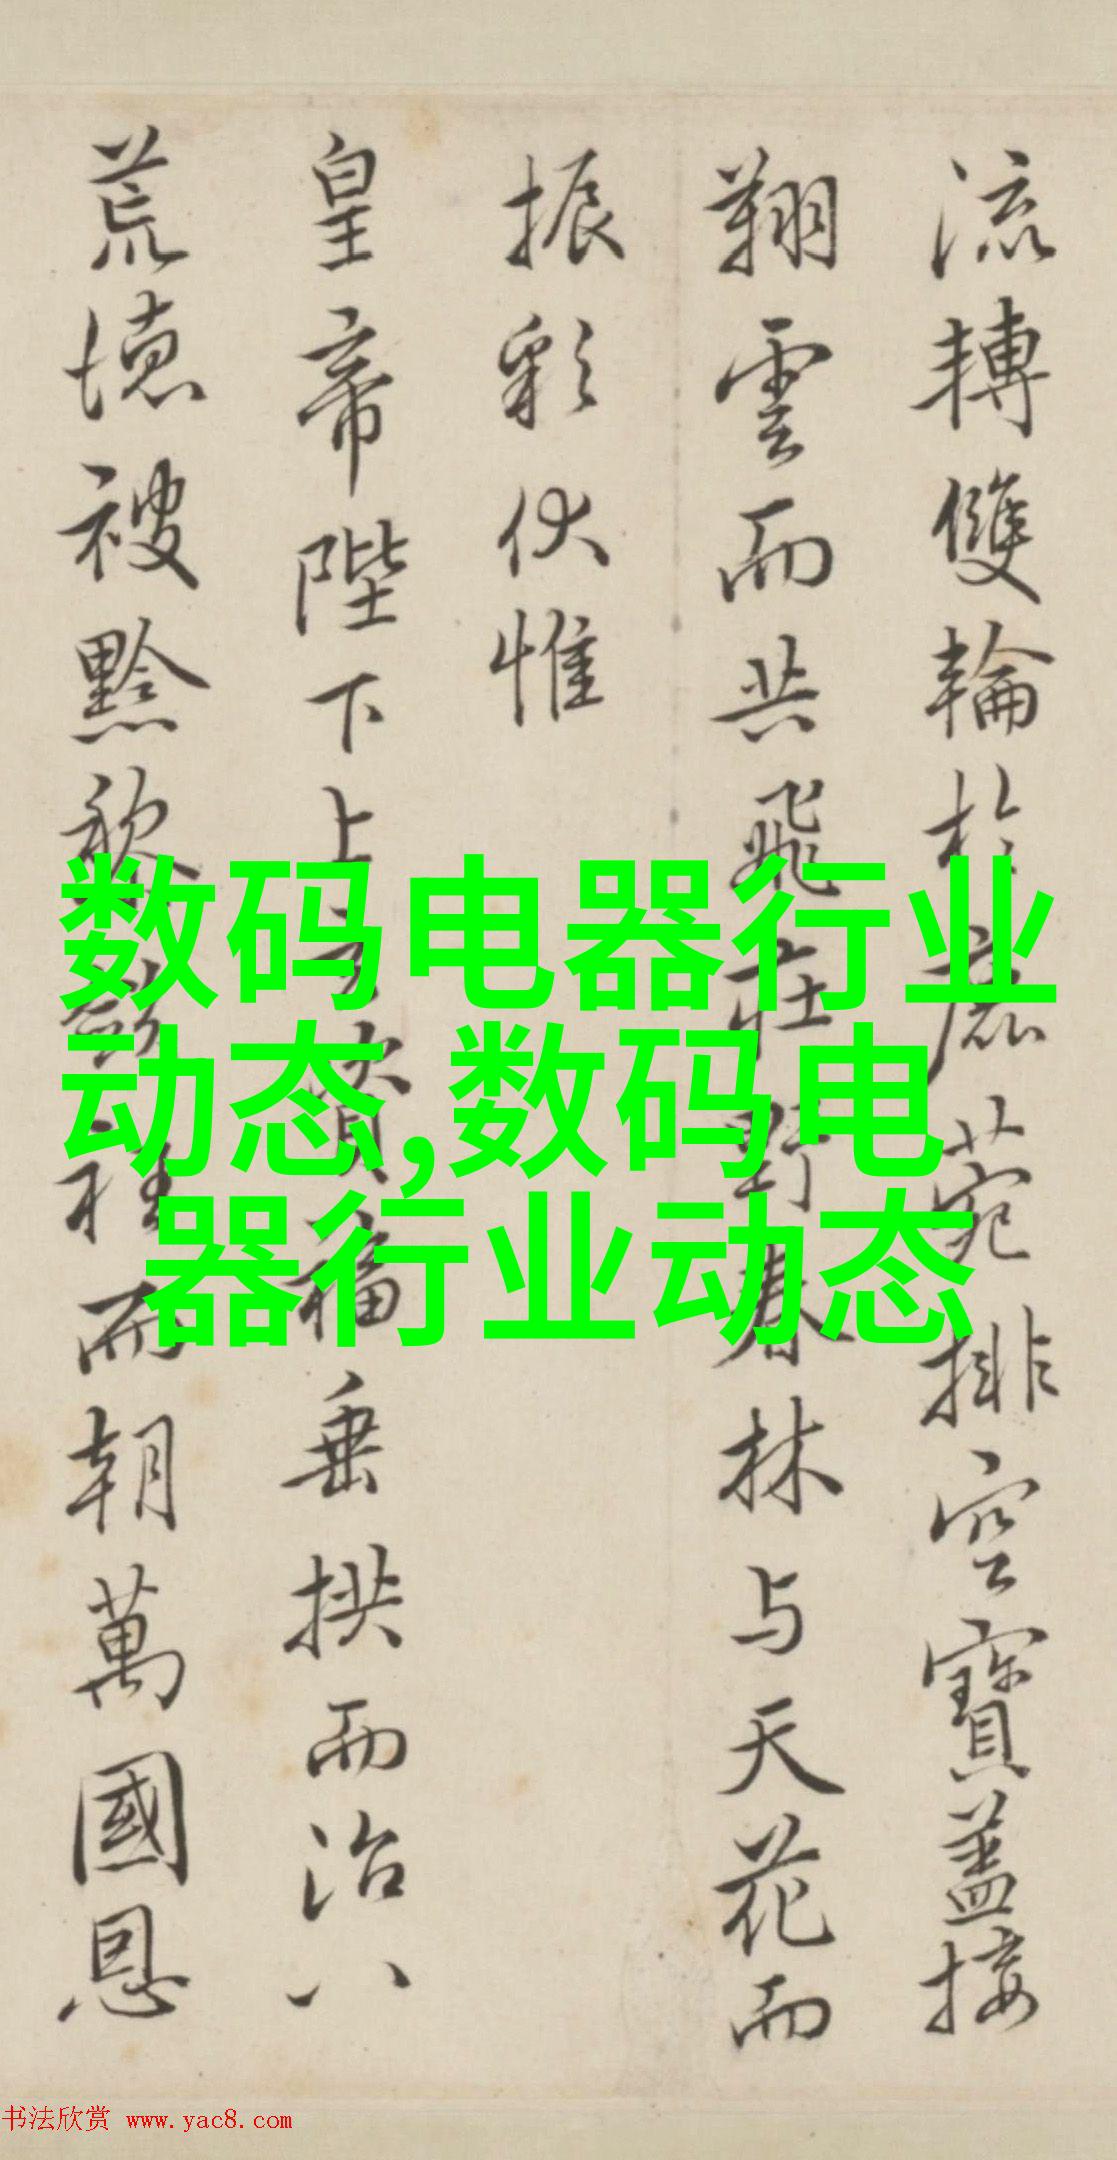 流轉雙輪於鹿菀排空寶蓋接
翔雲而共飛莊野春林与天花而
振彩伏惟
皇帝陛下上玄資福垂拱而治八
荒德被黔黎斂衽而朝萬國恩
数码电器行业
动态,数码电
器行业动态
书法欣赏 www.yac8.com